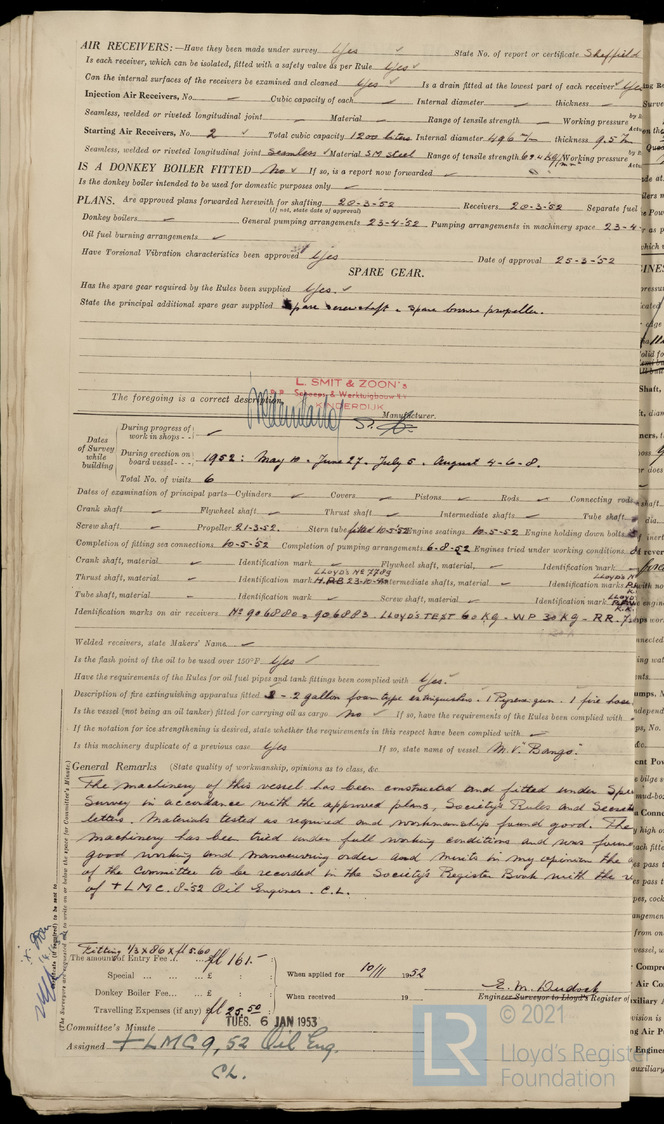 AIR RECEIVERS:—Have they been made under survey Yes ✓ State No. of report or certificate Sheffield
Is each receiver, which can be isolated, fitted with a safety valve as per Rule Yes ✓
Can the internal surfaces of the receivers be examined and cleaned Yes ✓ Is a drain fitted at the lowest part of each receiver ✓ Yes
Injection Air Receivers, No. — Cubic capacity of each — Internal diameter — thickness —
Seamless, welded or riveted longitudinal joint — Material — Range of tensile strength — Working pressure
Starting Air Receivers, No. 2 ✓ Total cubic capacity 1200 liters Internal diameter 496 m/m thickness 9.5 m/m
Seamless, welded or riveted longitudinal joint seamless ✓ Material SM steel Range of tensile strength Working pressure
IS A DONKEY BOILER FITTED No ✓ If so, is a report now forwarded ✓
Is the donkey boiler intended to be used for domestic purposes only ✓
PLANS. Are approved plans forwarded herewith for shafting 20-3-'52 Receivers 20-3-'52 Separate fuel
(If not, state date of approval)
Donkey boilers — General pumping arrangements 23-4-'52 Pumping arrangements in machinery space 23-4-
Oil fuel burning arrangements ✓
Have Torsional Vibration characteristics been approved Yes Date of approval 25-3-'52
SPARE GEAR.
Has the spare gear required by the Rules been supplied Yes. ✓
State the principal additional spare gear supplied Spare screwshaft & spare bronze propeller.
L. SMIT & ZOON's
Scheeps- & Werktuigbouw N.V.
KINDERDIJK
The foregoing is a correct description,
Manufacturer.
Dates of Survey while building
During progress of work in shops - - ✓
During erection on board vessel - - - 1952: May 10. June 27. July 5. August 4-6-8.
Total No. of visits 6
Dates of examination of principal parts—Cylinders ✓ Covers ✓ Pistons ✓ Rods ✓ Connecting rods
Crank shaft ✓ Flywheel shaft ✓ Thrust shaft ✓ Intermediate shafts ✓ Tube shaft
Screw shaft — Propeller 21-3-52. Stern tube fitted 10-5-52 Engine seatings 10-5-52 Engine holding down bolts
Completion of fitting sea connections 10-5-'52 Completion of pumping arrangements 6-8-52 Engines tried under working conditions
Crank shaft, material ✓ Identification mark ✓ Flywheel shaft, material ✓ Identification mark ✓
Thrust shaft, material ✓ Identification mark LLOYD's Nº 7789 Intermediate shafts, material ✓ Identification marks LLOYD's Nº
Tube shaft, material ✓ Identification mark ✓ Screw shaft, material ✓ Identification mark LLOYD
Identification marks on air receivers Nº 906880 & 906883 LLOYD'S TEST 60 KG - WP 30 KG - RR.
Welded receivers, state Makers' Name ✓
Is the flash point of the oil to be used over 150°F Yes ✓
Have the requirements of the Rules for oil fuel pipes and tank fittings been complied with Yes. ✓
Description of fire extinguishing apparatus fitted 2 - 2 gallon foam type extinguishers. 1 Pyrene gun. 1 fire hose
Is the vessel (not being an oil tanker) fitted for carrying oil as cargo No ✓ If so, have the requirements of the Rules been complied with
If the notation for ice strengthening is desired, state whether the requirements in this respect have been complied with ✓
Is this machinery duplicate of a previous case Yes If so, state name of vessel M.V. "Bango."
General Remarks (State quality of workmanship, opinions as to class, &c.
The machinery of this vessel has been constructed and fitted under Spe
Survey in accordance with the approved plans, Society's Rules and Secret
letters. Materials tested as required and workmanship found good. The
machinery has been tried under full working conditions and was found
good working and manœuvring order and merits in my opinion the
of the Committee to be recorded in the Society's Register Book with the
of +LMC. 8-52 Oil Engines. C.L.
Fitting 1/3 x 86 x fl 5.60
The amount of Entry Fee .. fl 161.-
Special ... ... £ :
Donkey Boiler Fee... £ :
Travelling Expenses (if any) fl 25.50
When applied for 10/11 1952
When received 19
Engineer Surveyor to Lloyd's Register of
Committee's Minute TUES. 6 JAN 1953
Assigned +LMC 9,52 Oil Eng.
CL.
(The Surveyors are requested not to write on or below the space for Committee's Minute.)
Certificate (if required) to be sent to
LR
© 2021
Lloyd's Register
Foundation